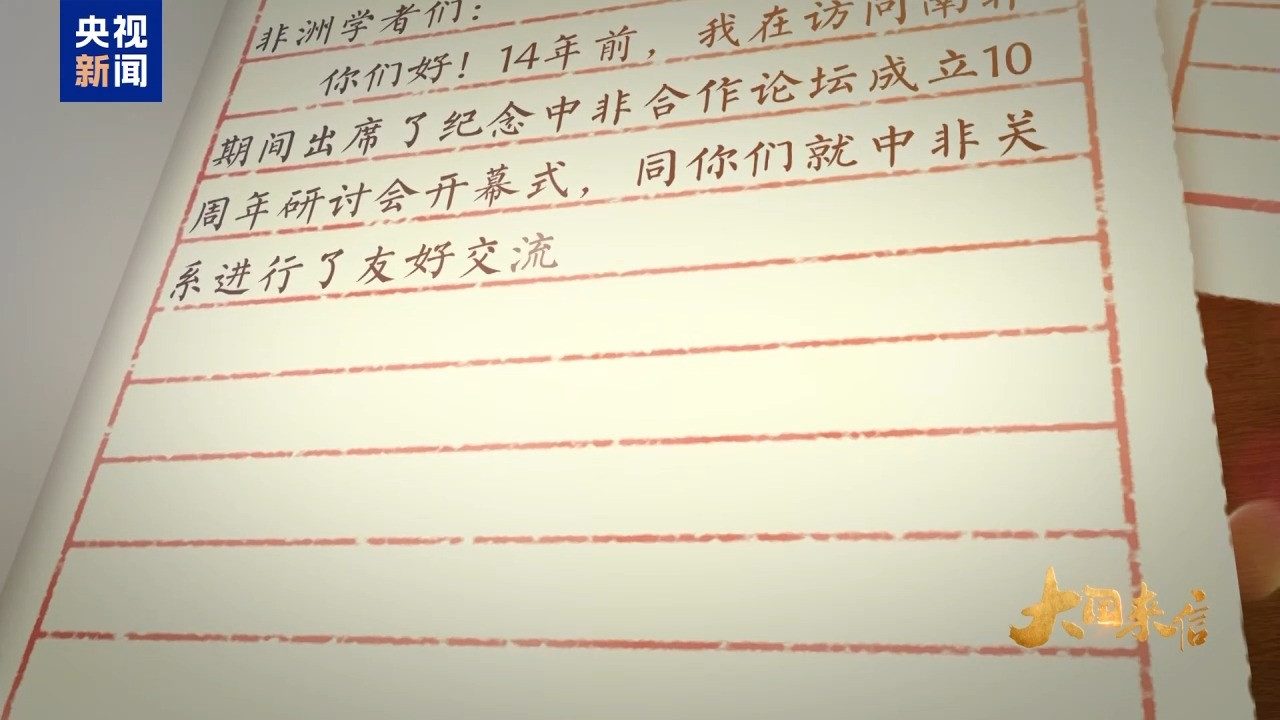 央视
新闻
非洲学者们：
你们好！14年前，我在访问南非
期间出席了纪念中非合作论坛成立10
周年研讨会开幕式，同你们就中非关
系进行了友好交流
大国来信